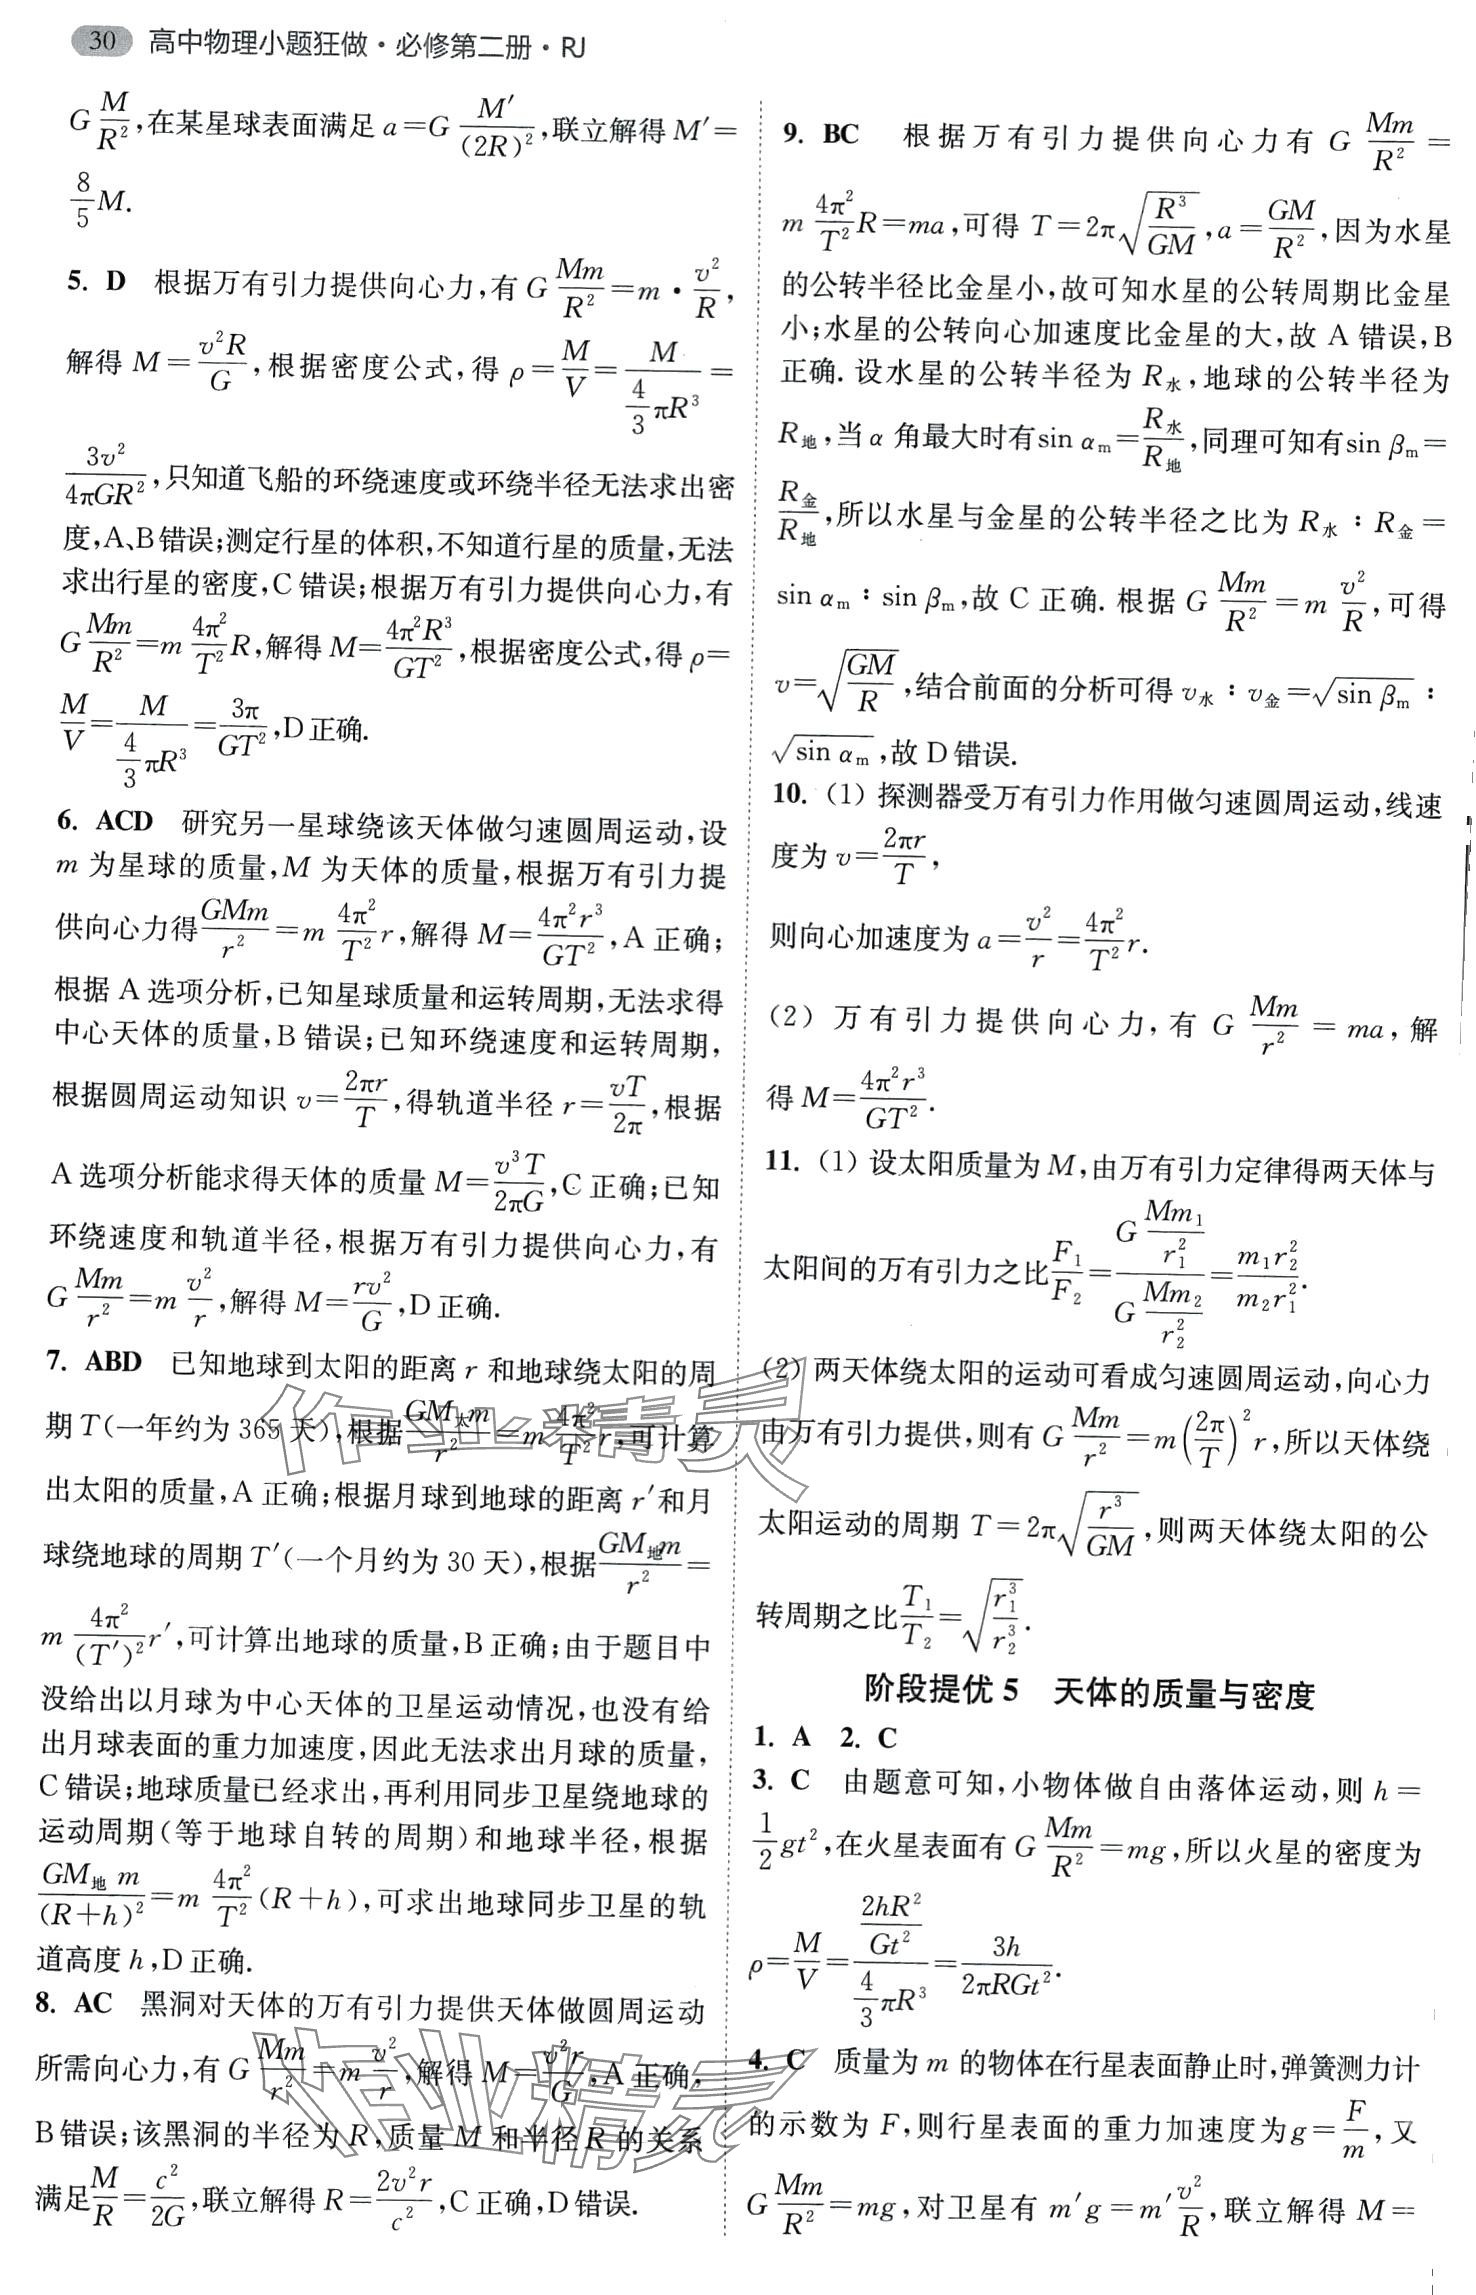 30 高中物理小题狂做·必修第二册·RJ
G M/R²,在某星球表面满足 a=G M′/(2R)²,联立解得 M′=
8/5 M.
5. D 根据万有引力提供向心力,有 G Mm/R²=m·v²/R,
解得 M=v²R/G,根据密度公式,得 ρ=M/V=M/(4/3 πR³)=
3v²/4πGR²,只知道飞船的环绕速度或环绕半径无法求出密
度,A、B错误;测定行星的体积,不知道行星的质量,无法
求出行星的密度,C错误;根据万有引力提供向心力,有
G Mm/R²=m 4π²/T² R,解得 M=4π²R³/GT²,根据密度公式,得 ρ=
M/V=M/(4/3 πR³)=3π/GT²,D正确.
6. ACD 研究另一星球绕该天体做匀速圆周运动,设
m 为星球的质量,M 为天体的质量,根据万有引力提
供向心力得 GMm/r²=m 4π²/T² r,解得 M=4π²r³/GT²,A 正确;
根据 A 选项分析,已知星球质量和运转周期,无法求得
中心天体的质量,B 错误;已知环绕速度和运转周期,
根据圆周运动知识 v=2πr/T,得轨道半径 r=vT/2π,根据
A 选项分析能求得天体的质量 M=v³T/2πG,C 正确;已知
环绕速度和轨道半径,根据万有引力提供向心力,有
G Mm/r²=m v²/r,解得 M=rv²/G,D正确.
7. ABD 已知地球到太阳的距离 r 和地球绕太阳的周
期 T(一年约为 365 天),根据 GM太m/r²=m 4π²/T² r,可计算
出太阳的质量,A 正确;根据月球到地球的距离 r′和月
球绕地球的周期 T′(一个月约为 30 天),根据 GM地m/r²=
m 4π²/(T′)² r′,可计算出地球的质量,B 正确;由于题目中
没给出以月球为中心天体的卫星运动情况,也没有给
出月球表面的重力加速度,因此无法求出月球的质量,
C错误;地球质量已经求出,再利用同步卫星绕地球的
运动周期(等于地球自转的周期)和地球半径,根据
GM地 m/(R+h)²=m 4π²/T² (R+h),可求出地球同步卫星的轨
道高度 h,D正确.
8. AC 黑洞对天体的万有引力提供天体做圆周运动
所需向心力,有 G Mm/r²=m v²/r,解得 M=v²r/G,A 正确,
B错误;该黑洞的半径为 R,质量 M 和半径 R 的关系
满足 M/R=c²/2G,联立解得 R=2v²r/c²,C正确,D错误.
9. BC 根据万有引力提供向心力有 G Mm/R²=
m 4π²/T² R=ma,可得 T=2π√(R³/GM),a=GM/R²,因为水星
的公转半径比金星小,故可知水星的公转周期比金星
小;水星的公转向心加速度比金星的大,故 A 错误,B
正确.设水星的公转半径为 R水,地球的公转半径为
R地,当 α 角最大时有 sin αm=R水/R地,同理可知有 sin βm=
R金/R地,所以水星与金星的公转半径之比为 R水∶R金=
sin αm∶sin βm,故 C 正确.根据 G Mm/R²=m v²/R,可得
v=√(GM/R),结合前面的分析可得 v水∶v金=√(sin βm)∶
√(sin αm),故 D错误.
10. (1) 探测器受万有引力作用做匀速圆周运动,线速
度为 v=2πr/T,
则向心加速度为 a=v²/r=4π²/T² r.
(2) 万有引力提供向心力,有 G Mm/r²=ma,解
得 M=4π²r³/GT².
11. (1) 设太阳质量为 M,由万有引力定律得两天体与
太阳间的万有引力之比 F₁/F₂=(G Mm₁/r₁²)/(G Mm₂/r₂²)=m₁r₂²/m₂r₁².
(2) 两天体绕太阳的运动可看成匀速圆周运动,向心力
由万有引力提供,则有 G Mm/r²=m(2π/T)² r,所以天体绕
太阳运动的周期 T=2π√(r³/GM),则两天体绕太阳的公
转周期之比 T₁/T₂=√(r₁³/r₂³).
阶段提优 5 天体的质量与密度
1. A 2. C
3. C 由题意可知,小物体做自由落体运动,则 h=
1/2 gt²,在火星表面有 G Mm/R²=mg,所以火星的密度为
ρ=M/V=(2hR²/Gt²)/(4/3 πR³)=3h/2πRGt².
4. C 质量为 m 的物体在行星表面静止时,弹簧测力计
的示数为 F,则行星表面的重力加速度为 g=F/m,又
G Mm/R²=mg,对卫星有 m′g=m′ v²/R,联立解得 M=
作业精灵
作业精灵